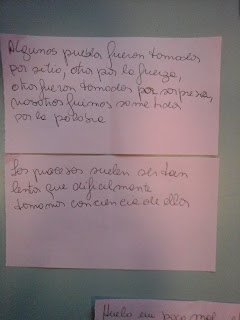 Algunos pueblos fueron tomados
por sitio, otros por la fuerza,
otros fueron tomados por sorpresa,
nosotros fuimos sometidos
por la palabra
Los procesos suelen ser tan
lentos que dificilmente
tomamos conciencia de ellos
Huele un poco mal